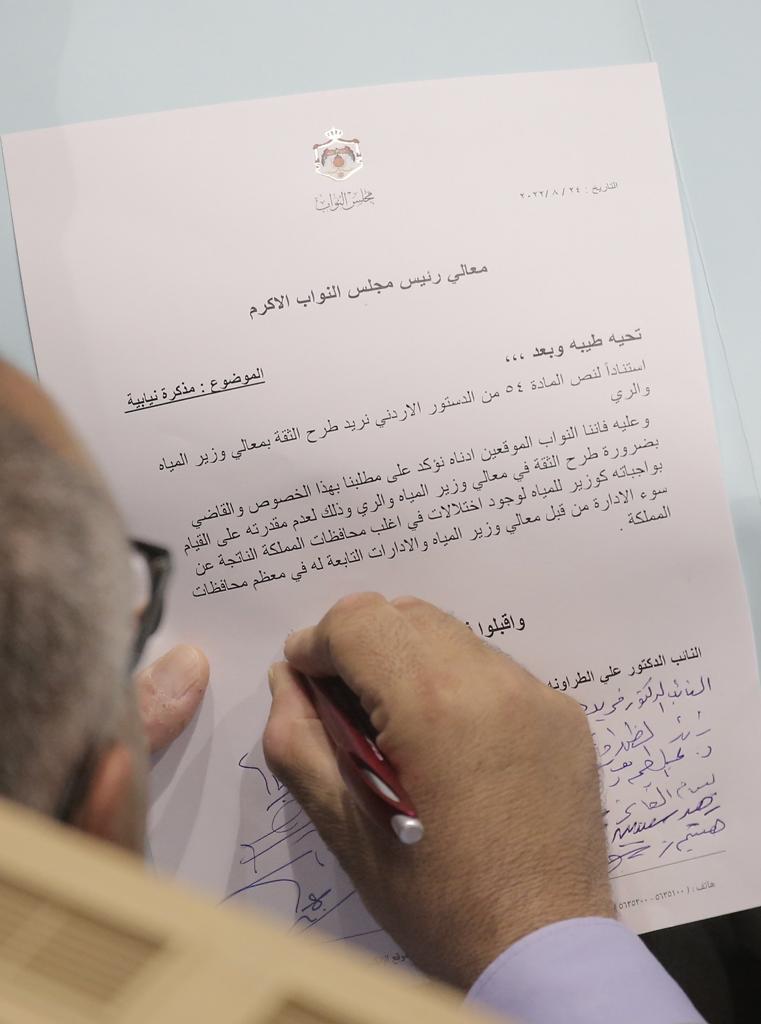 مجلس النواب
التاريخ : ٢٤ / ٨ / ٢٠٢٢
معالي رئيس مجلس النواب الاكرم
تحيه طيبه وبعد ،،،
الموضوع : مذكرة نيابية
استناداً لنص المادة ٥٤ من الدستور الاردني نريد طرح الثقة بمعالي وزير المياه
والري
وعليه فاننا النواب الموقعين ادناه نؤكد على مطلبنا بهذا الخصوص والقاضي
بضرورة طرح الثقة في معالي وزير المياه والري وذلك لعدم مقدرته على القيام
بواجباته كوزير للمياه لوجود اختلالات في اغلب محافظات المملكة الناتجة عن
سوء الادارة من قبل معالي وزير المياه والادارات التابعة له في معظم محافظات
المملكة .
واقبلوا
النائب الدكتور علي الطراونه
النائب الدكتور
هاتف : ( ٥٦٣٥١٠٠ - ٥٦٣٥٢٠٠